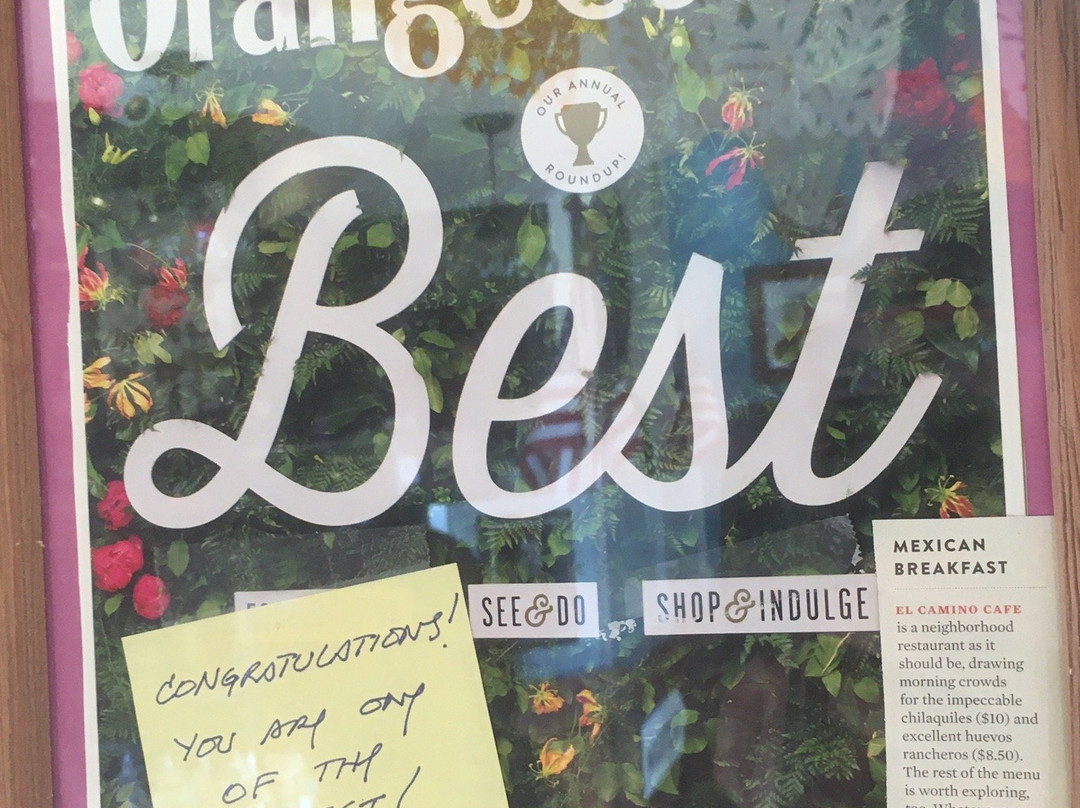 Orange Co
OUR ANNUAL
ROUNDUP!
Best
SEE & DO
SHOP & INDULGE
CONGRATULATIONS!
YOU ARE ONE
OF THE
MEXICAN
BREAKFAST
EL CAMINO CAFE
is a neighborhood
restaurant as it
should be, drawing
morning crowds
for the impeccable
chilaquiles ($10) and
excellent huevos
rancheros ($8.50).
The rest of the menu
is worth exploring,